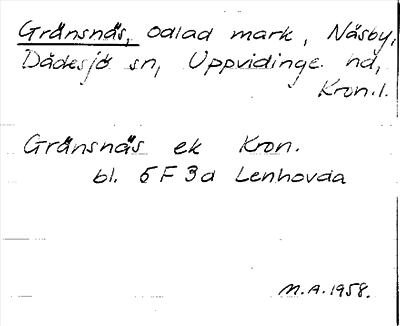 Gränsnäs, odlad mark, Näsby,
Dädesjö sn, Uppvidinge hd,
Kron. l.
Gränsnäs ek Kron.
bl. 5 F 3 d Lenhovda
M.A. 1958.